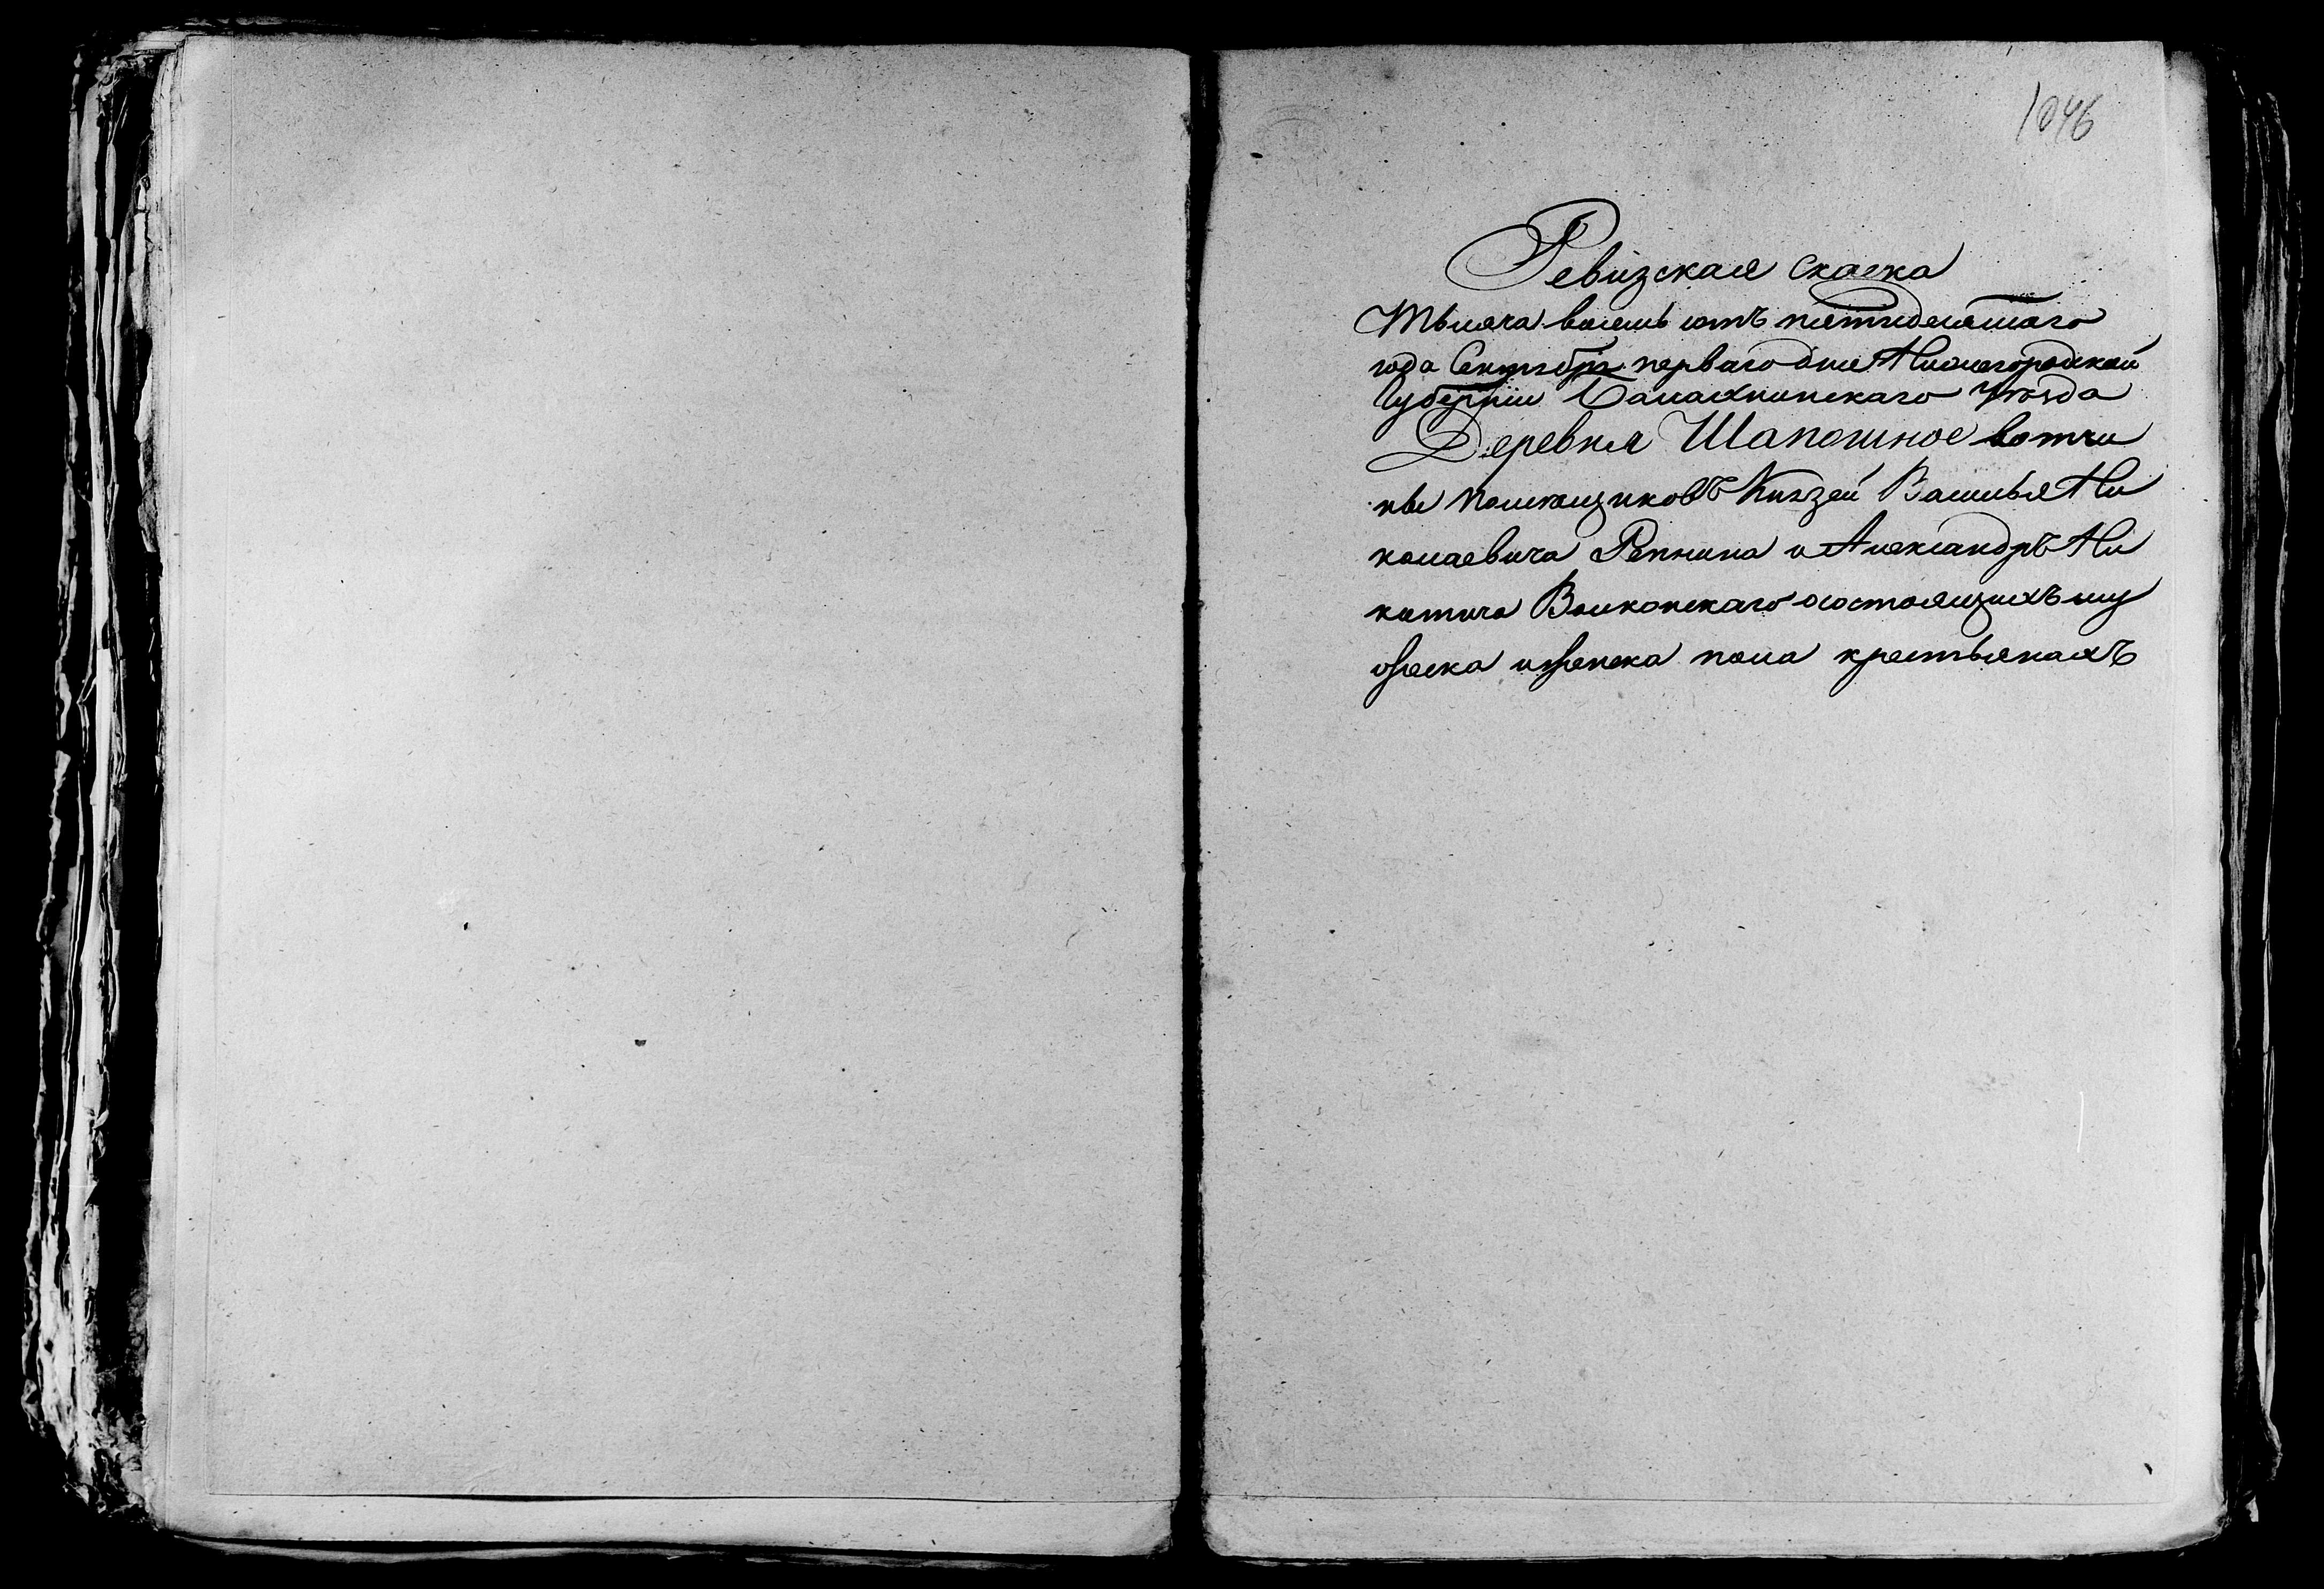 1046
Ревизская сказка
Тысяча восемь сотъ пятидесятаго
года Сентября перваго дня Нижегородской
Губернiи Балахнинскаго уѣзда
Деревня Шапошное вотчи
ны помѣщиковъ Князей Василья Ни
колаевича Репнина и Александръ Ни
китича Волконскаго осостоящихъ му
жеска иженска пола крестьянахъ